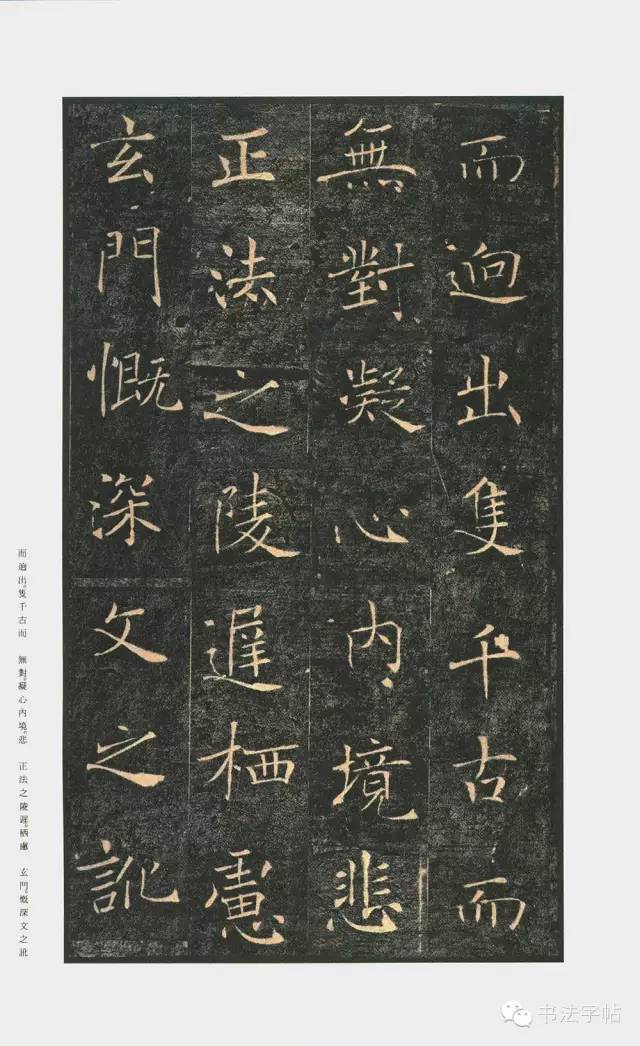 而逈出隻千古而
無對凝心內境悲
正法之陵遲栖慮
玄門慨深文之訛
而逈出。隻千古而　無對。凝心內境。悲　正法之陵遲。栖慮　玄門。慨深文之訛
书法字帖